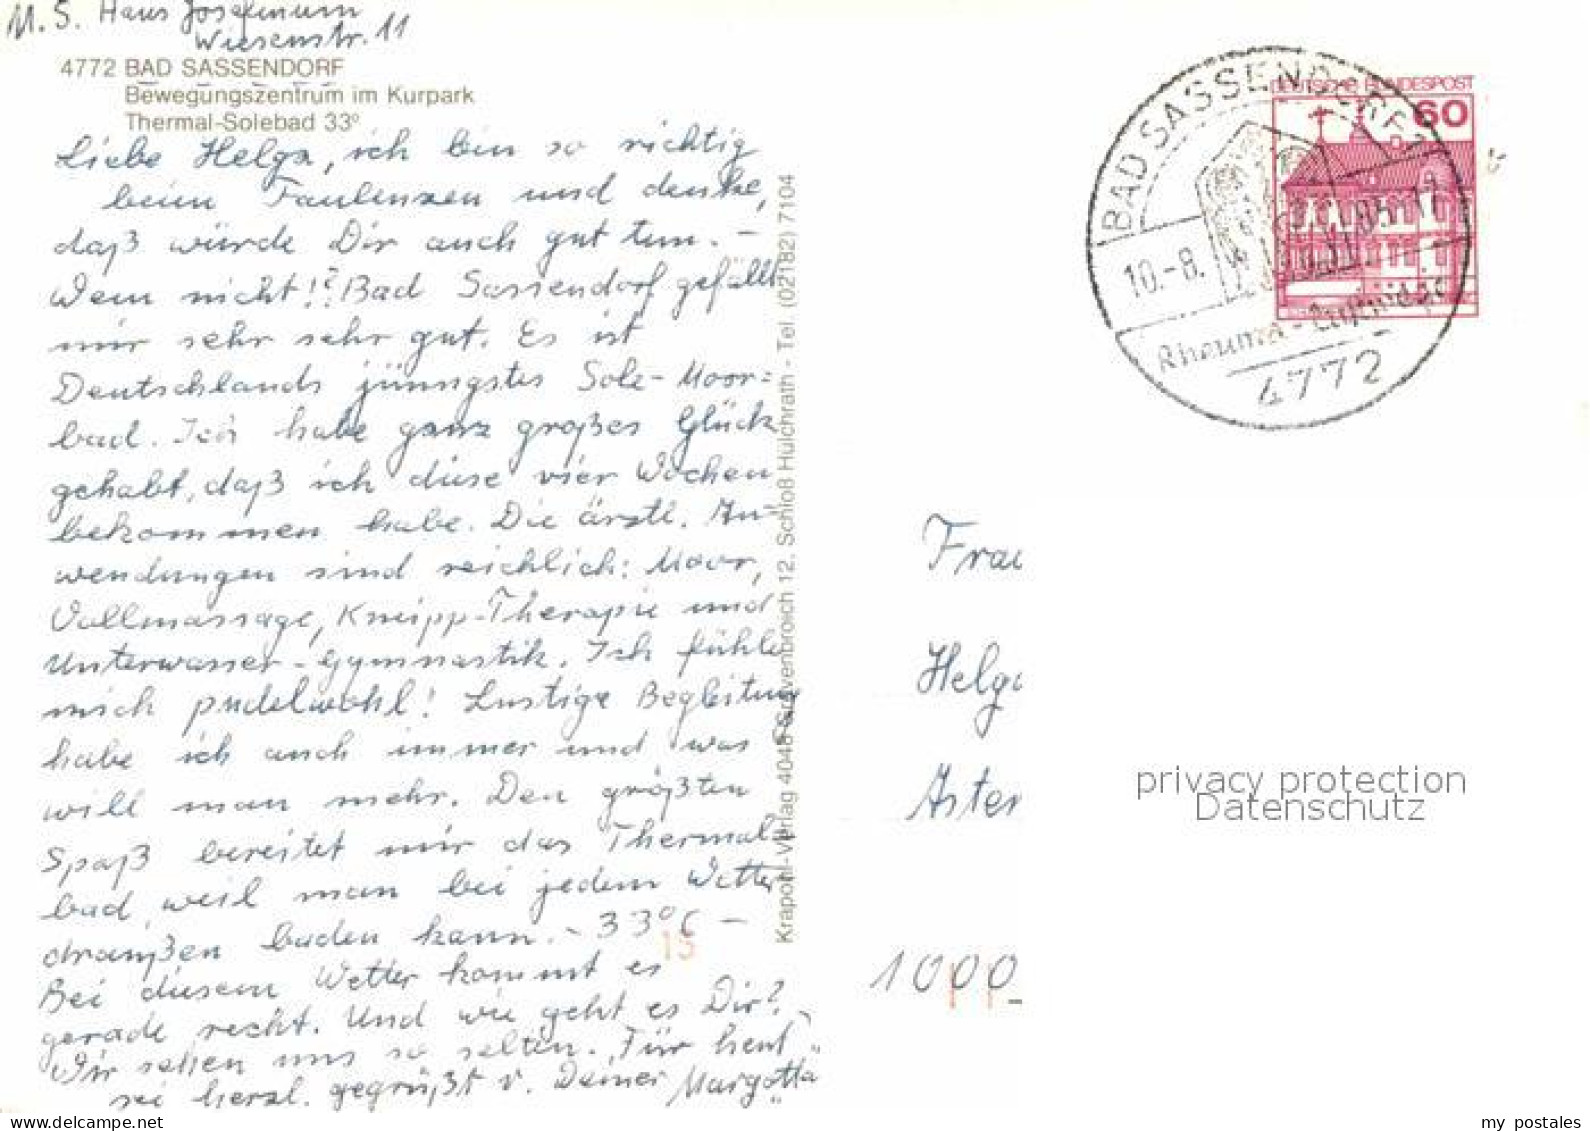 M. S. Haus Josefinum
Wiesenstr. 11
4772 BAD SASSENDORF
Bewegungszentrum im Kurpark
Thermal-Solebad 33°
Liebe Helga, ich bin so richtig
beim Faulenzen und denke,
daß würde Dir auch gut tun. –
Wenn nicht!? Bad Sassendorf gefällt
mir sehr sehr gut. Es ist
Deutschlands jünngstes Sole-Moor=
bad. Ich habe ganz großes Glück
gehabt, daß ich diese vier Wochen
bekommen habe. Die ärztl. An=
wendungen sind reichlich: Moor,
Vollmassage, Kneipp-Therapie und
Unterwasser-Gymnastik. Ich fühle
mich pudelwohl! Lustige Begleitung
habe ich auch immer und was
will man mehr. Den größten
Spaß bereitet mir das Thermal=
bad, weil man bei jedem Wetter
draußen baden kann. – 33°C –
Bei diesem Wetter kommt es
gerade recht. Und wie geht es Dir? –
Wir sehen uns so selten. „Für heut"
sei herzl. gegrüßt v. Deiner „Margotta"
Krapohl-Verlag 4048 Grevenbroich 12, Schloß Hülchrath - Tel. (02182) 7104
BAD SASSENDORF 1
10.-8.
Rheuma -
4772
DEUTSCHE BUNDESPOST
60
Frau
Helga
Aster
1000
15
privacy protection
Datenschutz
my postales